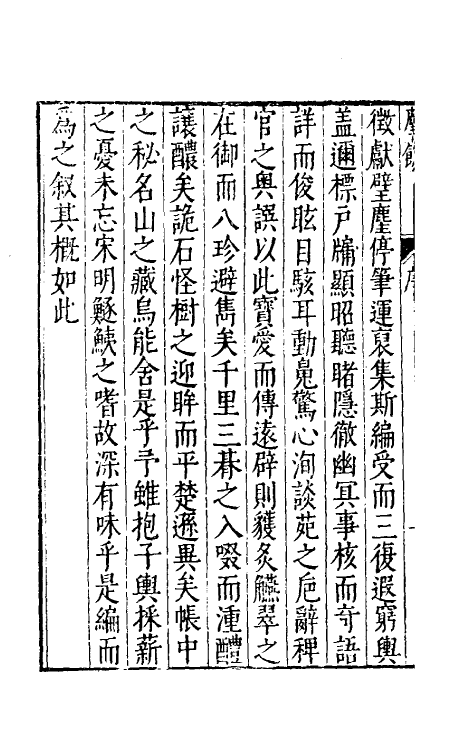 徵獻璧麈停筆運裒集斯編受而三復遐窮輿
盖邇標戸牖顯昭聽睹隱徹幽冥事核而奇語
詳而俊眩目駭耳動鳧驚心洵談苑之巵辭稗
官之奥譔以此寶愛而傳逺辟則獲炙觾翠之
在御而八珍避雋矣千里三碁之入啜而湩醴
讓醲矣詭石怪樹之迎眸而平楚遜異矣帳中
之秘名山之藏烏能舍是乎予雖抱子輿採薪
之憂未忘宋明鱁鮧之嗜故深有味乎是編而
爲之叙其概如此